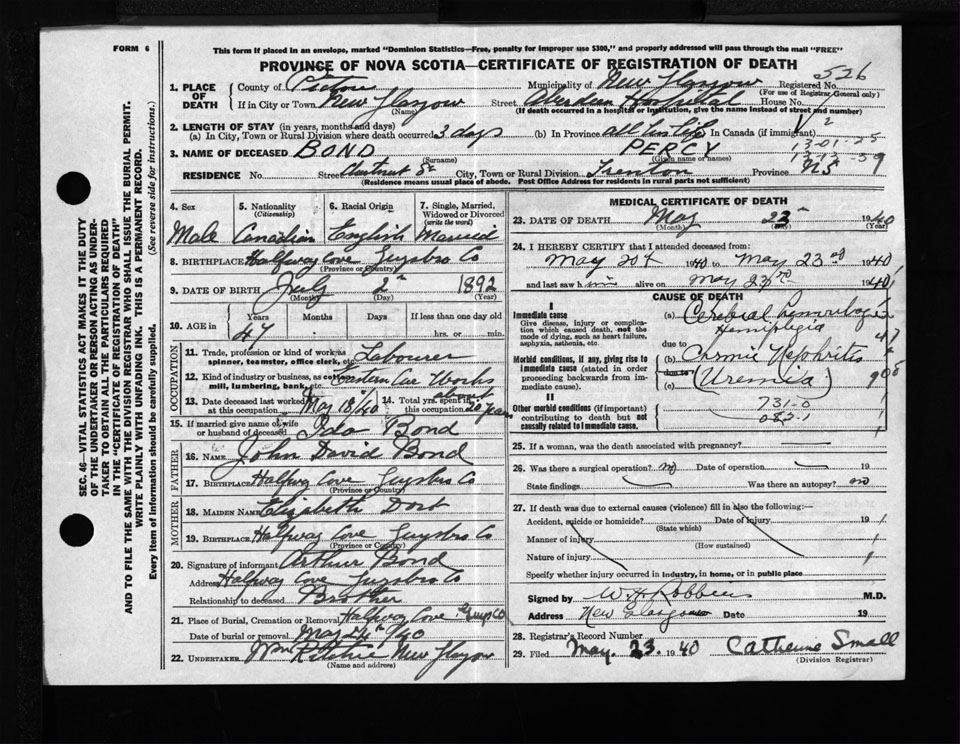 FORM 6
This form if placed in an envelope, marked "Dominion Statistics—Free, penalty for improper use $300," and properly addressed will pass through the mail "FREE"
PROVINCE OF NOVA SCOTIA—CERTIFICATE OF REGISTRATION OF DEATH
526
SEC. 46—VITAL STATISTICS ACT MAKES IT THE DUTY
OF THE UNDERTAKER OR PERSON ACTING AS UNDER-
TAKER TO OBTAIN ALL THE PARTICULARS REQUIRED
IN THE "CERTIFICATE OF REGISTRATION OF DEATH"
AND TO FILE THE SAME WITH THE DIVISION REGISTRAR WHO SHALL ISSUE THE BURIAL PERMIT.
WRITE PLAINLY WITH UNFADING INK. THIS IS A PERMANENT RECORD.
Every item of information should be carefully supplied. (See reverse side for instructions.)
1. PLACE OF DEATH
County of Pictou Municipality of New Glasgow Registered No.
(For use of Registrar General only)
If in City or Town New Glasgow Street Aberdeen Hospital House No.
(Name) (If death occurred in a hospital or institution, give the name instead of street and number)
2. LENGTH OF STAY (in years, months and days)
(a) In City, Town or Rural Division where death occurred 3 days (b) In Province all his life In Canada (if immigrant)
13-01-25
3. NAME OF DECEASED BOND PERCY
(Surname) (Given name or names)
13-12-59
RESIDENCE No. Street Chestnut St City, Town or Rural Division Trenton Province NS
(Residence means usual place of abode. Post Office Address for residents in rural parts not sufficient)
4. Sex
Male
5. Nationality (Citizenship)
Canadian
6. Racial Origin
English
7. Single, Married, Widowed or Divorced (write the word)
Married
8. BIRTHPLACE Halfway Cove Guysbro Co
(Province or Country)
9. DATE OF BIRTH July 2 1892
(Month) (Day) (Year)
10. AGE in Years Months Days If less than one day old
47 hrs. or min.
OCCUPATION
11. Trade, profession or kind of work as spinner, teamster, office clerk, etc. Labourer
12. Kind of industry or business, as cotton mill, lumbering, bank, etc. Eastern Car Works
13. Date deceased last worked at this occupation May 18/40
14. Total yrs. spent in this occupation about 20 years
15. If married give name of wife or husband of deceased Ida Bond
FATHER
16. NAME John David Bond
17. BIRTHPLACE Halfway Cove Guysbro Co
(Province or Country)
MOTHER
18. MAIDEN NAME Elizabeth Dort
19. BIRTHPLACE Halfway Cove Guysbro Co
(Province or Country)
20. Signature of informant Arthur Bond
Address Halfway Cove Guysbro Co
Relationship to deceased Brother
21. Place of Burial, Cremation or Removal Halfway Cove Guys Co
Date of burial or removal May 24th/40
22. UNDERTAKER Wm Ritchie New Glasgow
(Name and address)
MEDICAL CERTIFICATE OF DEATH
23. DATE OF DEATH May 23 1940
(Month) (Day) (Year)
24. I HEREBY CERTIFY that I attended deceased from:
May 20th 1940 to May 23rd 1940
and last saw him alive on May 23rd 1940
CAUSE OF DEATH
I
Immediate cause
Give disease, injury or complication which caused death, not the mode of dying, such as heart failure, asphyxia, asthenia, etc.
(a) Cerebral Hemorrhage
Hemiplegia
due to
Morbid conditions, if any, giving rise to immediate cause (stated in order proceeding backwards from immediate cause).
(b) Chronic Nephritis
due to
(c) (Uremia)
II
Other morbid conditions (if important) contributing to death but not causally related to immediate cause.
731-0
082-1
25. If a woman, was the death associated with pregnancy?
26. Was there a surgical operation? no Date of operation 19
State findings Was there an autopsy? no
27. If death was due to external causes (violence) fill in also the following:—
Accident, suicide or homicide? Date of injury 19
(State which)
Manner of injury
(How sustained)
Nature of injury
Specify whether injury occurred in industry, in home, or in public place
Signed by W H Robbins M.D.
Address New Glasgow Date 19
28. Registrar's Record Number
29. Filed May. 23. 1940 Catherine Small
(Division Registrar)